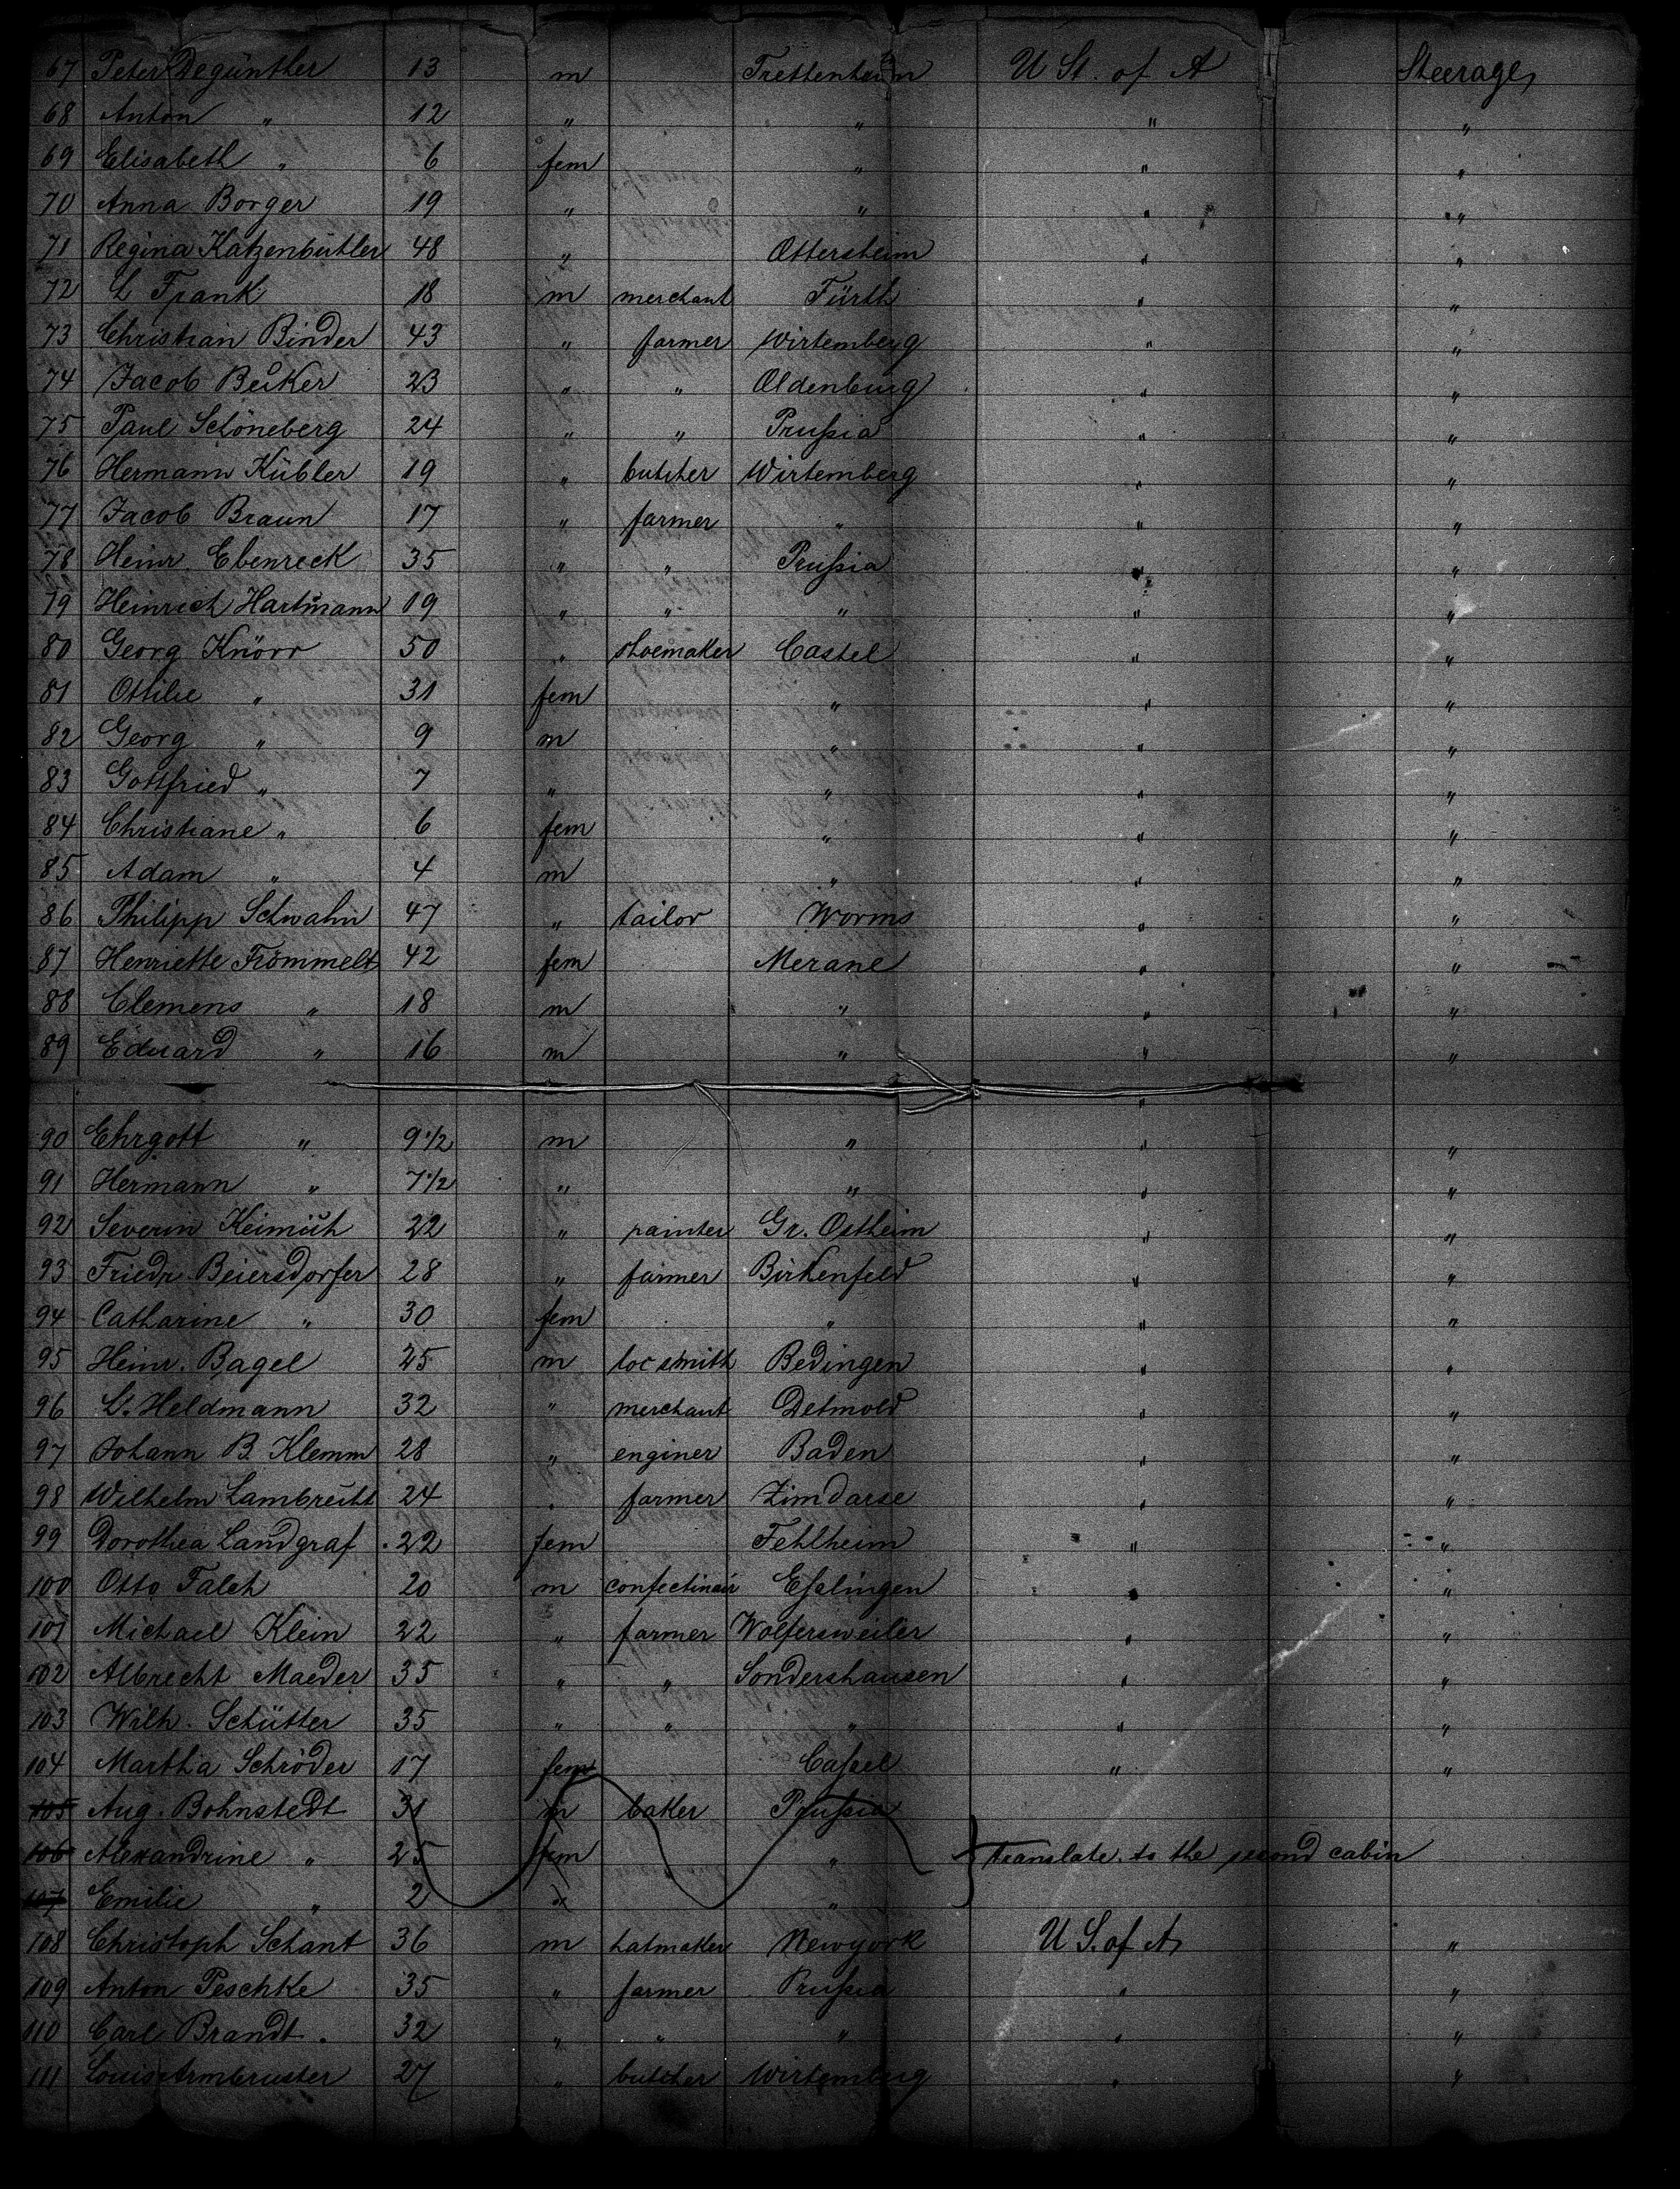 67 Peter Degünther 13 m Trettenheim U St. of A Steerage,
68 Anton " 12 " " " "
69 Elisabeth " 6 fem " " "
70 Anna Borger 19 " " " "
71 Regina Katzenbütler 48 " Ottersheim " "
72 L Frank 18 m merchant Fürth " "
73 Christian Binder 43 " farmer Wirtemberg " "
74 Jacob Becker 23 " " Oldenburg " "
75 Paul Schöneberg 24 " " Prußia " "
76 Hermann Kübler 19 " butcher Wirtemberg " "
77 Jacob Braun 17 " farmer " " "
78 Heinr. Ebenreck 35 " " Prußia " "
79 Heinrich Hartmann 19 " " " " "
80 Georg Knörr 50 " shoemaker Castel " "
81 Ottilie " 31 fem " " "
82 Georg " 9 m " " "
83 Gottfried " 7 " " " "
84 Christiane " 6 fem " " "
85 Adam " 4 m " " "
86 Philipp Schwahn 47 " tailor Worms " "
87 Henriette Frömmelt 42 fem Merane " "
88 Clemens " 18 m " " "
89 Eduard " 16 m " " "
"
90 Ehrgott " 9 1/2 m " " "
91 Hermann " 7 1/2 " " " "
92 Severin 22 " painter Gr. Ostheim " "
93 Friedr. Beiersdorfer 28 " farmer Birkenfeld " "
94 Catharine " 30 fem " " "
95 Heinr. Bagel 25 m locsmith Bedingen " "
96 L. Heldmann 32 " merchant Detmold " "
97 Johann B. Klemm 28 " enginer Baden " "
98 Wilhelm Lambrecht 24 " farmer Zimdarse " "
99 Dorothea Landgraf 22 fem Fehlheim " "
100 Otto Falch 20 m confectinair Eßlingen " "
101 Michael Klein 22 " farmer Wolfersweiler " "
102 Albrecht Maeder 35 " " Sondershausen " "
103 Wilh. Schütter 35 " " " " "
104 Martha Schröder 17 fem Caßel " "
105 Aug. Bohnstedt 31 m baker Prußia
106 Alexandrine " 25 fem " } Translate to the second cabin
107 Emilie " 2 " "
108 Christoph Schant 36 m hatmaker Newyork U S. of A "
109 Anton Peschke 35 " farmer Prußia " "
110 Carl Brandt. 32 " " " " "
111 Louis Armbruster 27 " butcher Wirtemberg " "